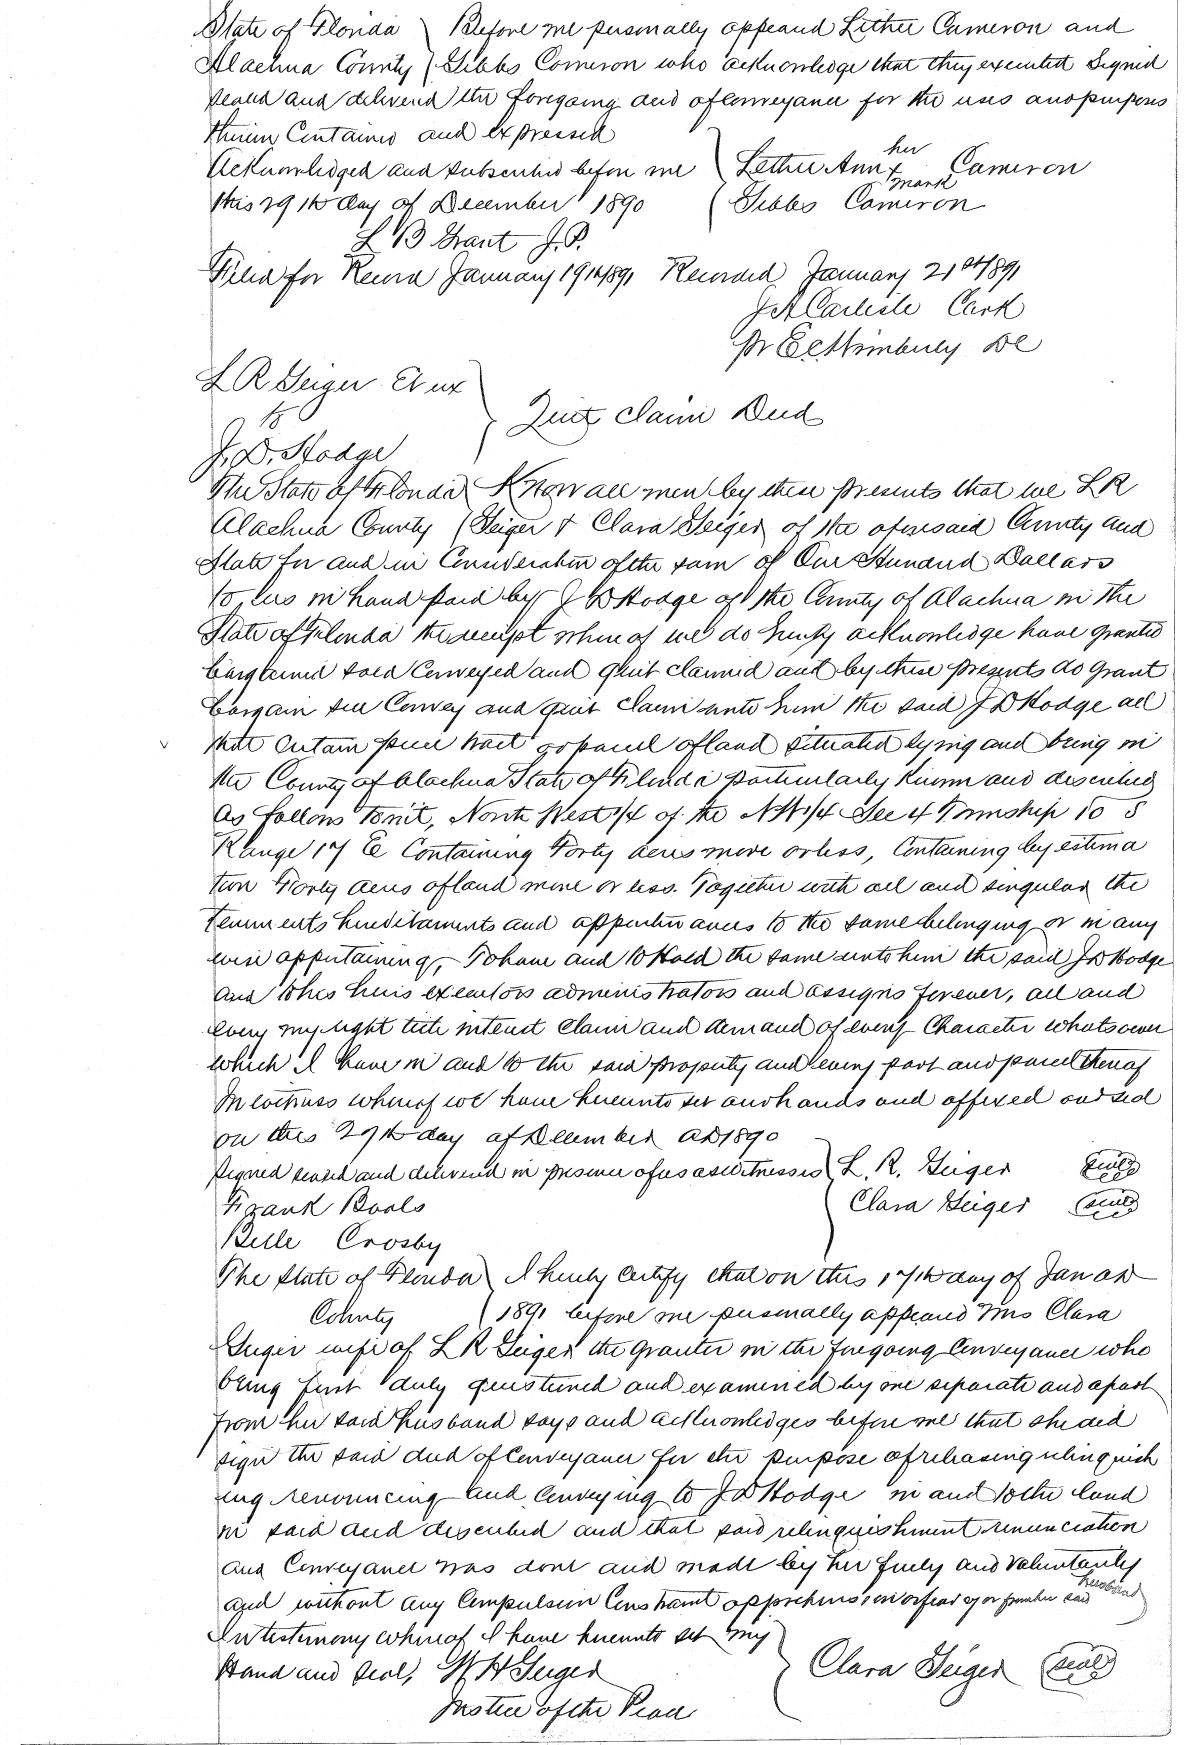 State of Florida } Before me personally appeared Lether Cameron and
Alachua County { Gibbs Cameron who acknowledge that they executed Signed
sealed and delivered the foregoing deed of Conveyance for the uses and purposes
therein Contained and expressed
Acknowledged and subscribed before me { Lether Ann her x mark Cameron
this 29th day of December 1890 { Gibbs Cameron
L B Grant J.P.
Filed for Record January 19th 1891 Recorded January 21st 1891
J A Carlisle Clerk
pr E C Wimberly DC
L R Geiger Et ux
to } Quit claim Deed
J. D. Hodge
The State of Florida } Know all men by these presents that we L R
Alachua County { Geiger & Clara Geiger of the aforesaid County and
State for and in Consideration of the sum of One Hundred Dollars
to us in hand paid by J D Hodge of the County of Alachua in the
State of Florida the receipt where of we do hereby acknowledge have granted
bargained sold Conveyed and quit claimed and by these presents do grant
bargain sell Convey and quit claim unto him the said J D Hodge all
that certain piece tract or parcel of land situated lying and being in
the County of Alachua State of Florida particularly known and described
as follows towit, North West 1/4 of the NW 1/4 Sec 4 Township 10 S
Range 17 E Containing Forty acres more or less, Containing by estima
tion Forty acres of land more or less. Together with all and singular the
tenements hereditaments and appurtenances to the same belonging or in any
wise appertaining, To have and to Hold the same unto him the said J D Hodge
and to his heirs executors administrators and assigns forever, all and
every my right title interest claim and demand of every Character whatsoever
which I have in and to the said property and every part and parcel thereof
In witness whereof we have hereunto set our hands and affixed our seal
on this 29th day of December AD 1890
Signed sealed and delivered in presence of us as witnesses } L. R. Geiger (seal)
Frank Bools { Clara Geiger (seal)
Belle Crosby
The State of Florida } I hereby Certify that on this 17th day of Jan AD
County { 1891 before me personally appeared Mrs Clara
Geiger wife of L R Geiger the grantor in the foregoing Conveyance who
being first duly questioned and examined by me separate and apart
from her said husband says and acknowledges before me that she did
sign the said deed of Conveyance for the purpose of releasing relinquish
ing renouncing and Conveying to J D Hodge in and to the land
in said deed described and that said relinquishment renunciation
and Conveyance was done and made by her freely and voluntarily
and without any Compulsion Constraint apprehension or fear of or from her said husband
In testimony whereof I have hereunto set my
Hand and Seal, W H Geiger } Clara Geiger (seal)
Justice of the Peace